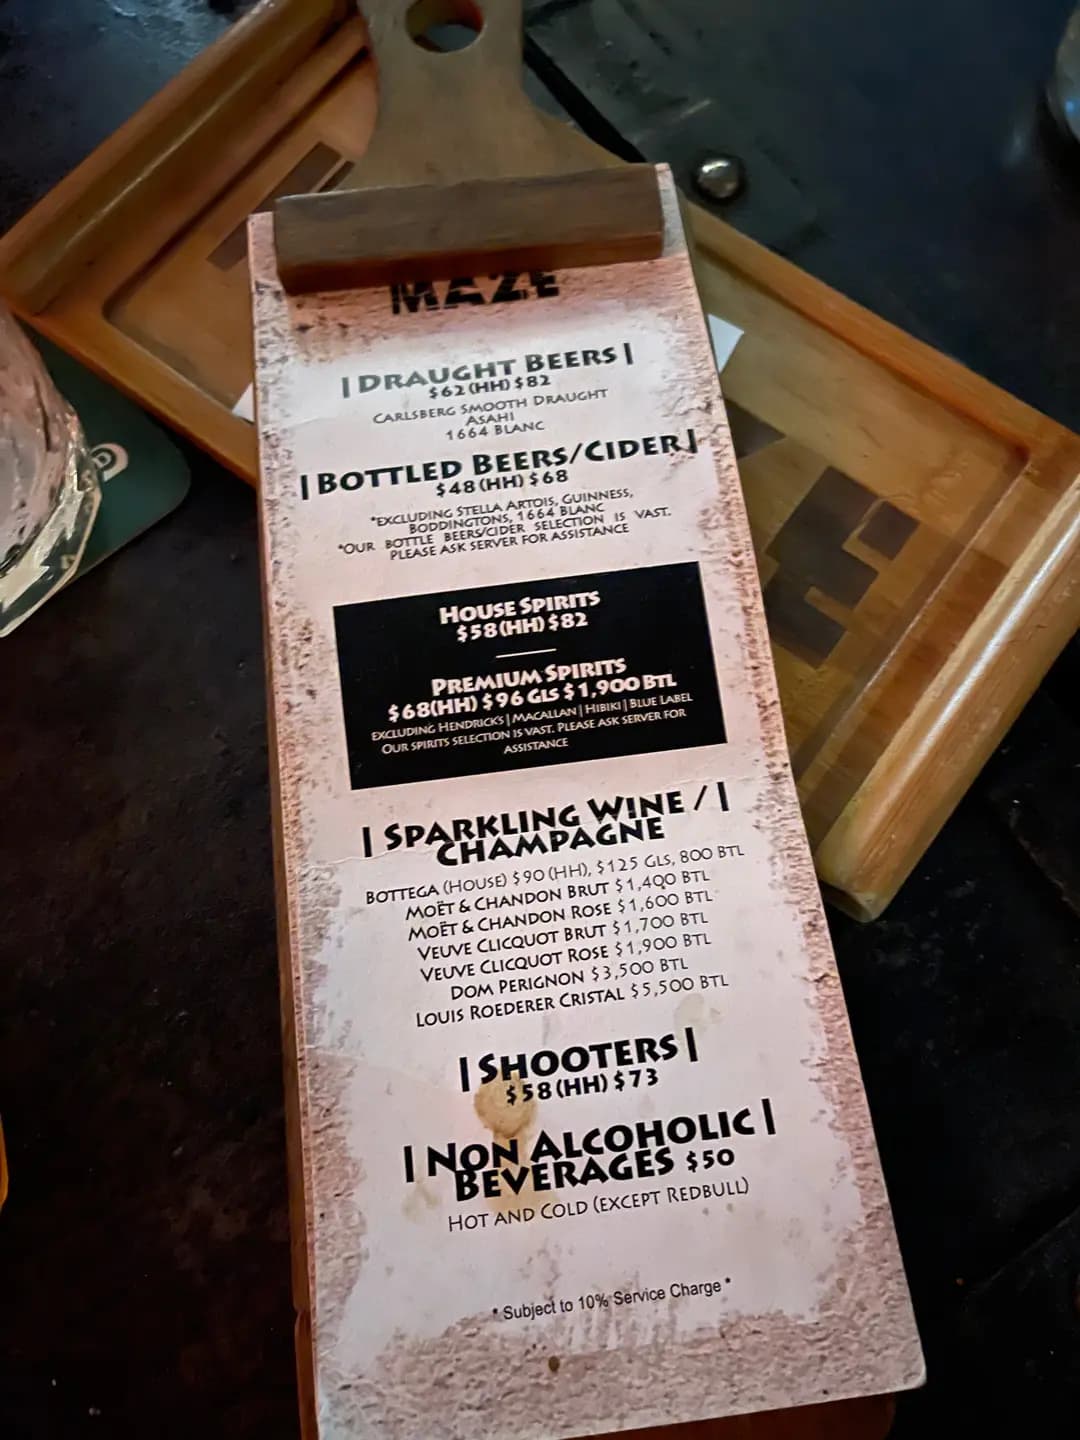 MAZE
| DRAUGHT BEERS |
$62 (HH) $82
CARLSBERG SMOOTH DRAUGHT
ASAHI
1664 BLANC
| BOTTLED BEERS/CIDER |
$48 (HH) $68
*EXCLUDING STELLA ARTOIS, GUINNESS,
BODDINGTONS, 1664 BLANC
*OUR BOTTLE BEERS/CIDER SELECTION IS VAST.
PLEASE ASK SERVER FOR ASSISTANCE
HOUSE SPIRITS
$58(HH) $82
PREMIUM SPIRITS
$68(HH) $96 GLS $1,900 BTL
EXCLUDING HENDRICKS | MACALLAN | HIBIKI | BLUE LABEL
OUR SPIRITS SELECTION IS VAST. PLEASE ASK SERVER FOR
ASSISTANCE
| SPARKLING WINE / |
CHAMPAGNE
BOTTEGA (HOUSE) $90 (HH), $125 GLS, 800 BTL
MOËT & CHANDON BRUT $1,400 BTL
MOËT & CHANDON ROSE $1,600 BTL
VEUVE CLICQUOT BRUT $1,700 BTL
VEUVE CLICQUOT ROSE $1,900 BTL
DOM PERIGNON $3,500 BTL
LOUIS ROEDERER CRISTAL $5,500 BTL
| SHOOTERS |
$58 (HH) $73
| NON ALCOHOLIC |
BEVERAGES $50
HOT AND COLD (EXCEPT REDBULL)
* Subject to 10% Service Charge *